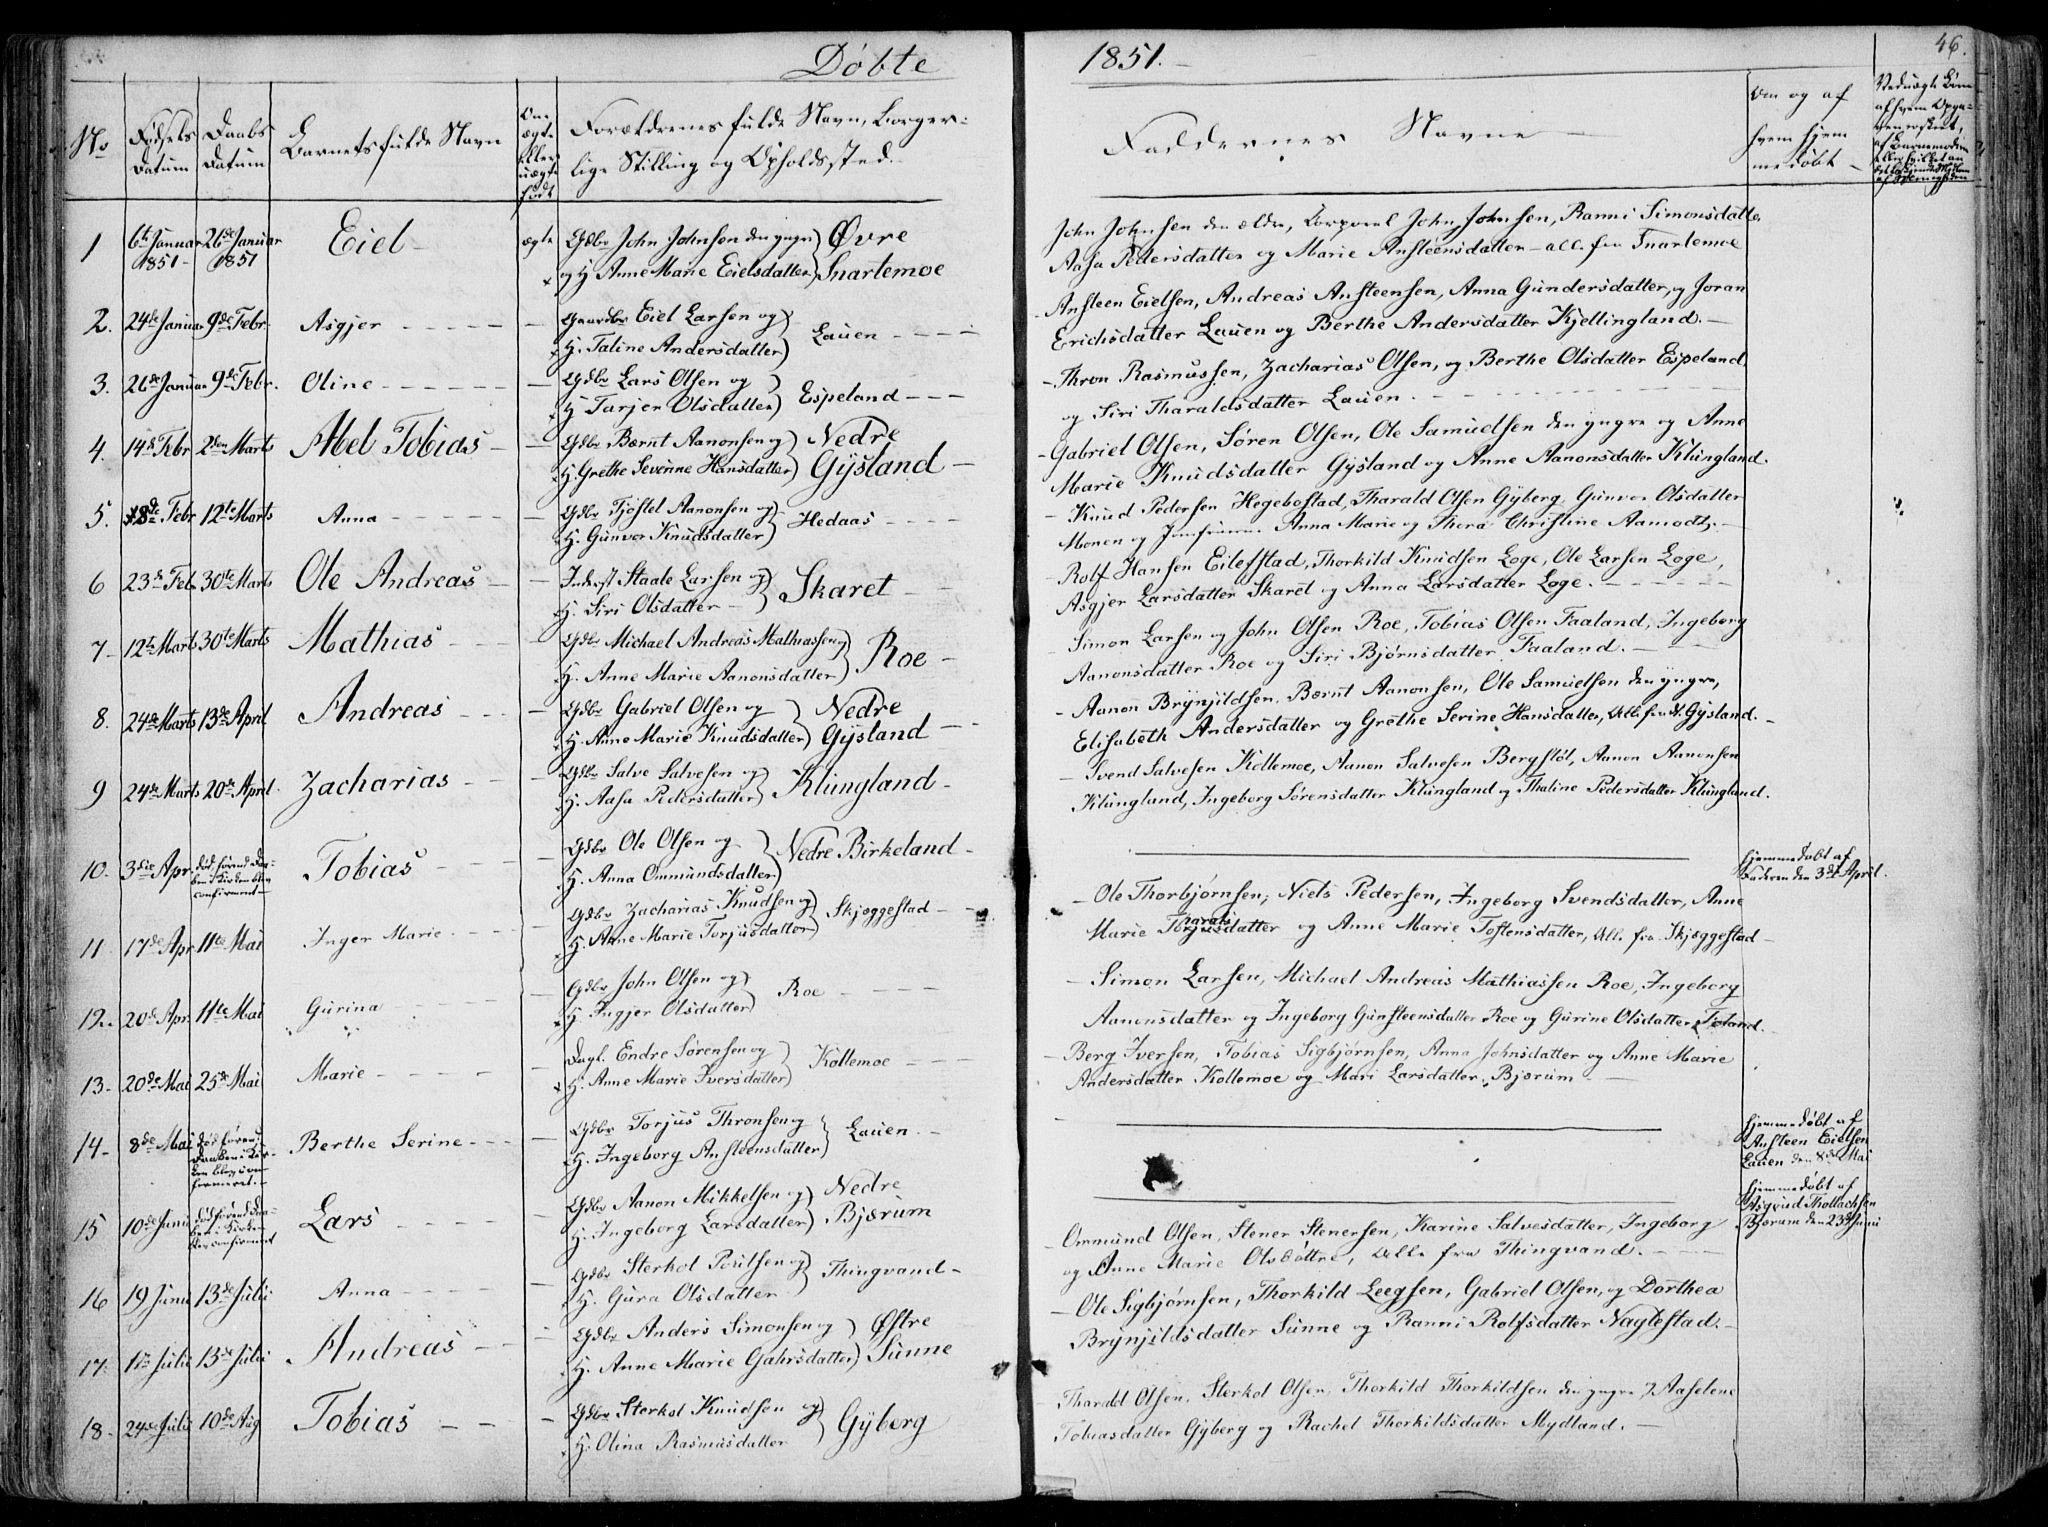 Döbte 1851. 46.
No
Fødsels Datum
Daabs Datum
Barnets fulde Navn
Forældrenes fulde Navn, Borger-
lige Stilling og Opholdssted.
Faddernes Navne
1 6te Januar 1851 26de Januar 1851 Eiel ægte Gdbr John Johnsen den yngre Øvre
og H Anne Marie Eielsdatter Snartemoe
John Johnsen den eldre, Corporal John Johnsen, Ranni Simonsdatter
Aasa Pedersdatter og Marie Ansteensdatter alle fra Snartemoe
2. 24de Januar 9de Febr. Asgjer Gaardbr Eiel Larsen og
H. Taline Andersdatter Lauen
Ansteen Eielsen, Andreas Ansteensen, Anna Gundersdatter, og Joran
Erichsdatter Lauen og Berthe Andersdatter Kjellingland.
3. 26de Januar 9de Febr. Oline Gdbr Lars Olsen og
H Tarjer Olsdatter Espeland
Thron Rasmussen, Zacharias Olsen, og Berthe Olsdatter Espeland
og Siri Tharaldsdatter Lauen.
4. 14de Febr 2den Marts Abel Tobias Gdbr Bernt Aanonsen og Nedre
H. Grethe Severine Hansdatter Gysland
Gabriel Olsen, Søren Olsen, Ole Samuelsen den yngre og Anne
Marie Knudsdatter Gysland og Anne Aanonsdatter Klungland.
5. 18de Febr 12te Marts Anna Gdbr Tjøstel Aanonsen og
H. Gunvor Knudsdatter Hedaas
Knud Pedersen Hegebostad, Tharald Olsen Gyberg, Gunvor Olsdatter
Monen og Jomfruerne Anna Marie og Thora Christine Aamodt.
6 23de Feb. 30te Marts Ole Andreas Inderst Staale Larsen og
H. Siri Olsdatter Skaret
Rolf Hansen Eilefstad, Thorkild Knudsen Loge, Ole Larsen Loge,
Asgjer Larsdatter Skaret og Anna Larsdatter Loge.
7 12te Marts 30te Marts Mathias Gdbr Michael Andreas Mathiassen og
H. Anne Marie Aanonsdatter Roe
Simon Larsen og John Olsen Roe, Tobias Olsen Faaland, Ingeborg
Aanonsdatter Roe og Siri Bjørnsdatter Faaland.
8. 24de Marts 13de April Andreas Gdbr Gabriel Olsen og Nedre
H. Anne Marie Knudsdatter Gysland
Aanon Brynjildsen, Bernt Aanonsen, Ole Samuelsen den yngre,
Elisabeth Andersdatter og Grethe Serine Hansdatter, Alle fra N. Gysland.
9 24de Marts 20de April. Zacharias Gdbr Salve Salvesen og
H. Aasa Pedersdatter Klungland
Svend Salvesen Kollemoe, Aanon Salvesen Bergsløt, Aanon Aanonsen
Klungland, Ingeborg Sørensdatter Klungland og Thaline Pedersdatter Klungland.
10. 3die Apr. død førend Daa-
ben i Kirken blev
confirmeret Tobias Gdbr Ole Olsen og
H. Anna Ommundsdatter Nedre Birkeland
hjemmedøbt af
Faderen den 3die April.
11 17de Apr 11te Mai Inger Marie Gdbr Zacharias Knudsen og
H. Anne Marie Torjusdatter Skjæggestad
Ole Thorbjørnsen, Niels Pedersen, Ingeborg Svendsdatter, Anne
Marie Torjusdatter og Anne Marie Tostensdatter, Alle fra Skjæggestad
12. 20de Apr. 11te Mai Gurina Gdbr John Olsen og
H. Ingjer Olsdatter Roe
Simon Larsen, Michael Andreas Mathiassen Roe, Ingeborg
Aanonsdatter og Ingeborg Gunsteensdatter Roe og Gurine Olsdatter Foland.
13. 20de Mai 25de Mai Marie Dagl. Endre Sørensen og
H. Anne Marie Iversdatter Kollemoe
Berg Iversen, Tobias Sigbjørnsen, Anna Johnsdatter og Anne Marie
Andersdatter Kollemoe og Mari Larsdatter Bjærum
14 8de Mai død førend
Daaben i Kir-
ken blev con-
firmeret. Berthe Serine Gdbr Torjus Thronsen og
H. Ingeborg Ansteensdatter Lauen.
hjemmedøbt af
Ansteen Eielsen
Lauen den 8de Mai
15 10de Juni død førend Daa-
ben i Kirken
blev confirmeret Lars Gdbr Aanon Mikkelsen og Nedre
H. Ingeborg Larsdatter Bjærum
hjemmedøbt af
Asgrud Thollachsen
Bjærum den 23de Juni
16 19 Juni 13de Julii Anna Gdbr Sterkol Poritsen og
H. Gura Olsdatter Thingvand
Ommund Olsen, Stener Stenersen, Karine Salvesdatter, Ingeborg
og Anne Marie Olsdøttre, Alle fra Thingvand.
17. 1te Julii 13de Julii Andreas Gdbr Anders Simonsen og Østre
H. Anne Marie Gahrsdatter Sunne
Ole Sigbjørnsen, Thorkild Leegsen, Gabriel Olsen, og Dorthea
Brynjildsdatter Sunne og Ranni Rolfsdatter Naglestad.
18 24de Julii 10de Aug Tobias Gdbr Sterkol Knudsen og
H. Olina Rasmusdatter Gyberg
Tharald Olsen, Sterkol Olsen, Thorkild Thorkildsen den yngre, Aaselene
Tobiasdatter Gyberg og Rachel Thorkildsdatter Mydland.